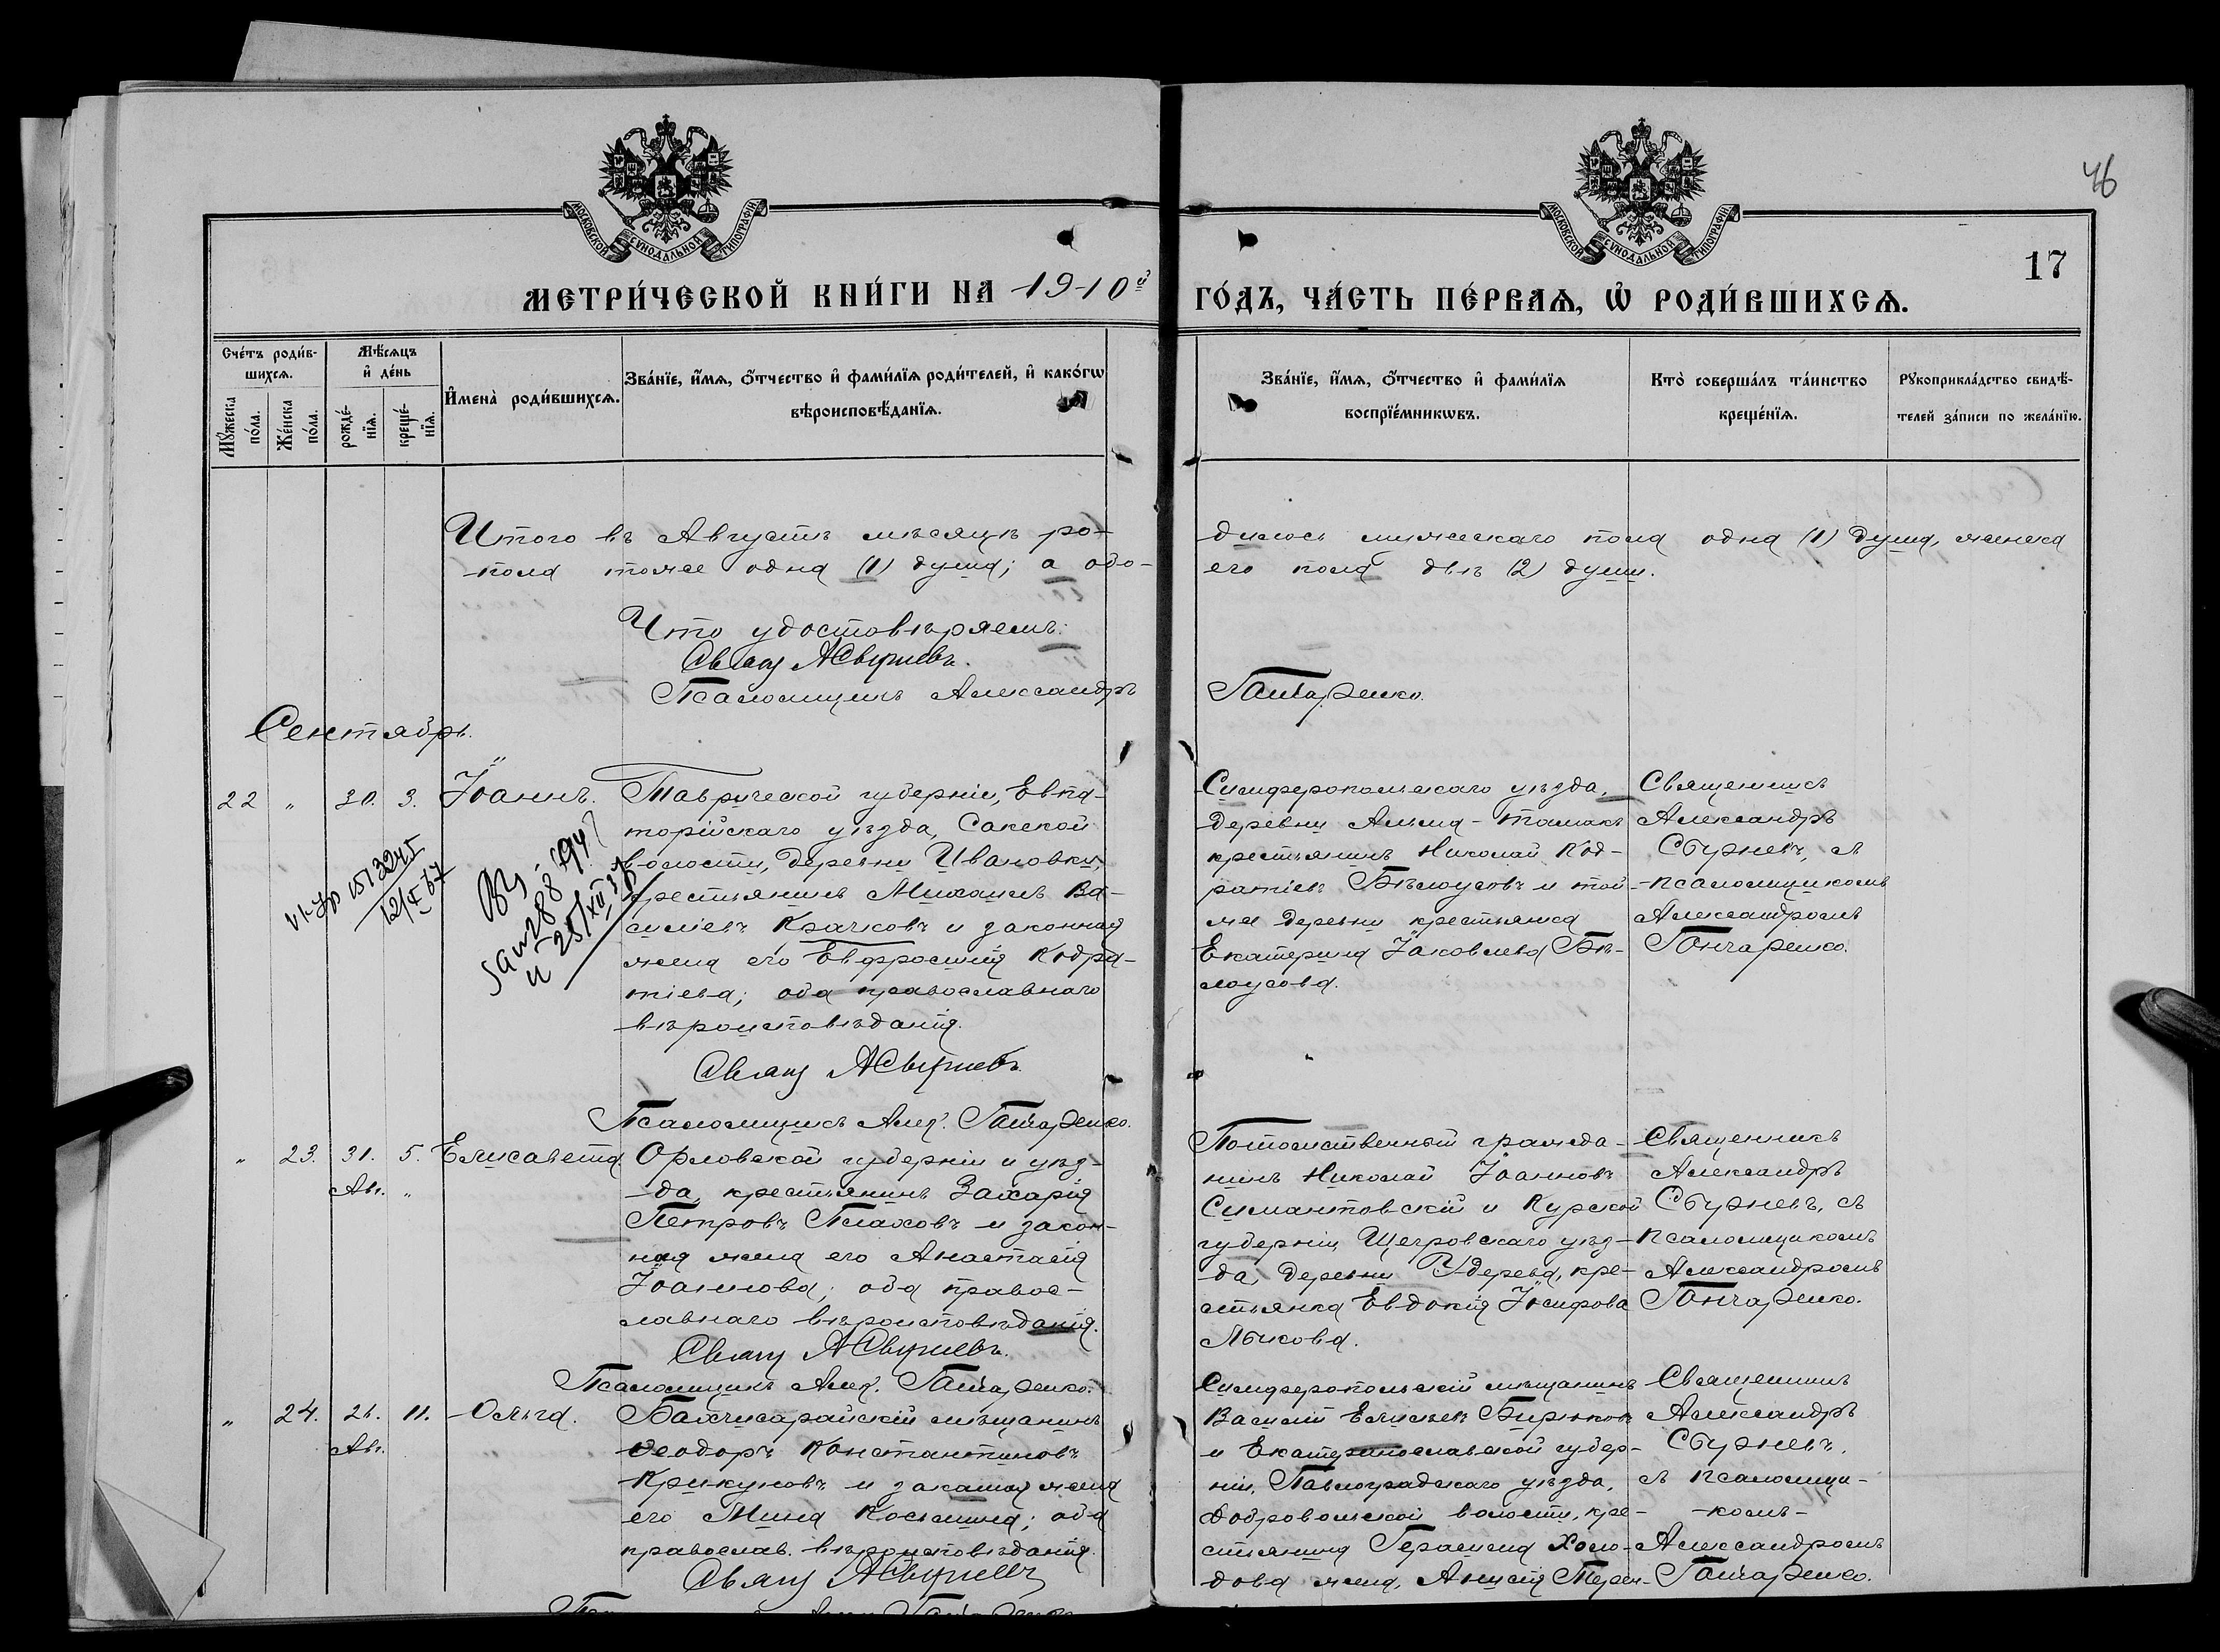 46
МОСКОВСКОЙ СѴНОДАЛЬНОЙ ТИПОГРАФІИ
МОСКОВСКОЙ СѴНОДАЛЬНОЙ ТИПОГРАФІИ
17
МЕТРИ́ЧЕСКОЙ КНИ́ГИ НА 1910й
ГО́ДЪ, ЧА́СТЬ ПЕ́РВАѦ, Ѡ РОДИ́ВШИХСѦ.
Сче́тъ роди́в-
шихсѧ.
Мꙋжеска по́ла.
Же́нска по́ла.
Мѣ́сѧцъ
и҆ де́нь
рожде́-нїѧ.
креще́-нїѧ.
И҆мена̀ роди́вшихсѧ.
Зва́нїе, и҆́мѧ, ѻ҆́тчество и҆ фами́лїѧ роди́телей, и҆ како́гѡ
вѣроисповѣ́данїѧ.
Зва́нїе, и҆́мѧ, ѻ҆́тчество и҆ фами́лїѧ
воспрїе́мникѡвъ.
Кто̀ соверша́лъ та́инство
креще́нїѧ.
Рꙋкоприкла́дство свидѣ́-
телей за́писи по жела́нїю.
Итого въ Августѣ мѣсяцѣ ро-
дилось мужескаго пола одна (1) душа, женска
пола тоже одна (1) душа; а обо-
его пола двѣ (2) души.
Что удостовѣряемъ:
Свящ АСбурневъ.
Псаломщикъ Александръ
Гончаренко.
Сентябрь.
22 " 30. 3. Іоаннъ.
Таврической губерніи, Евпа-
торійскаго уѣзда, Сакской
волости, деревни Ивановки,
крестьянинъ Михаилъ Ва-
силіевъ Крачковъ и законная
жена его Евфросинія Кодра-
тіева; оба православнаго
вѣроисповѣданія.
Свящ АСбурневъ
Псаломщикъ Алек. Гончаренко.
12/X 67
25/XII
Симферопольскаго уѣзда,
деревни Альма-Тамакъ
крестьянинъ Николай Код-
ратіевъ Бѣлоусовъ и той
же деревни крестьянка
Екатерина Іаковлева Бѣ-
лоусова.
Священникъ
Александръ
Сбурневъ, съ
псаломщикомъ
Александромъ
Гончаренко.
" 23. 31. 5. Елисавета.
Авг. "
Орловской губерніи и уѣз-
да, крестьянинъ Захарія
Петровъ Плаховъ и закон-
ная жена его Анастасія
Іоаннова; оба правос-
лавнаго вѣроисповѣданія.
Свящ АСбурневъ.
Псаломщикъ Алек. Гончаренко.
Потомственный гражда-
нинъ Николай Іоанновъ
Симантовскій и Курской
губерніи Щегровскаго уѣз-
да, деревни Удерева, кре-
стьянка Евдокія Іосифова
Лыкова.
Священникъ
Александръ
Сбурневъ, съ
псаломщикомъ
Александромъ
Гончаренко.
" 24. 21. 11. Ольга.
Авг.
Бахчисарайскій мѣщанинъ
Ѳеодоръ Константиновъ
Крикуновъ и законная жена
его Косьмина; оба
православ. вѣроисповѣданія.
Свящ АСбурневъ
Симферопольскій мѣщанинъ
Василій Бирюковъ
и Екатеринославской губер-
ніи, Павлоградскаго уѣзда,
Добровольской волости, кре-
стьянина Герасима Холо-
дова жена,
Священникъ
Александръ
Сбурневъ,
съ псаломщи-
-комъ-
Александромъ
Гончаренко.